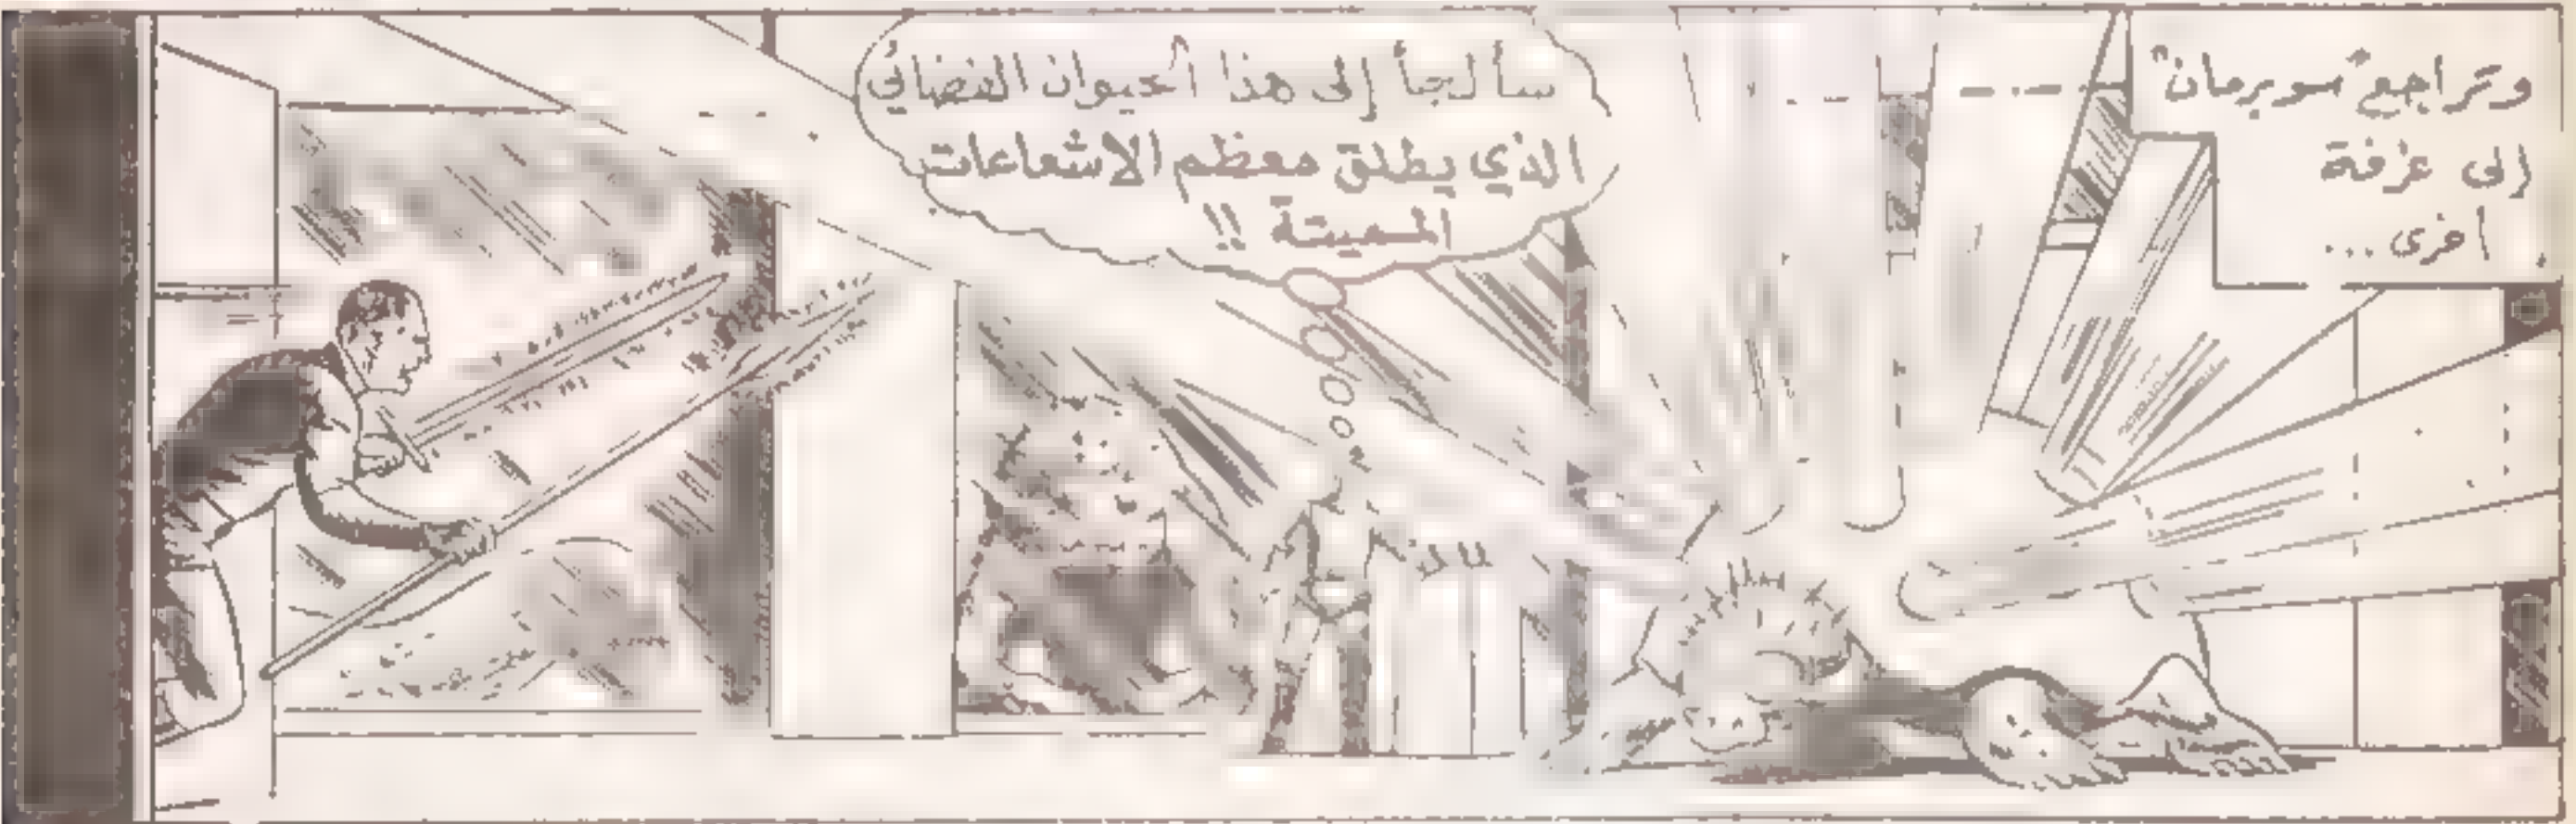 وتراجع "سوبرمان"
إلى غرفة
أخرى ...
سألجأ إلى هذا الحيوان الفضائي
الذي يطلق معظم الاشعاعات
المميتة !!